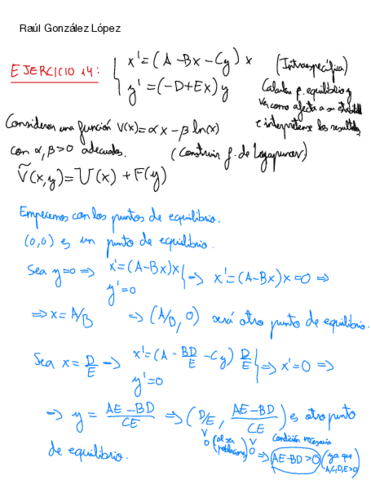 Raúl González López
EJERCICIO 14: { x' = (A - Bx - Cy) x (Intraespecífica)
y' = (-D + Ex) y Calcular p. equilibrio y
Ver como afecta a su estabilidad
Consideremos una función V(x) = αx - β ln(x) e interpretense los resultados
con α, β > 0 adecuados. (Construir f. de Lyapunov)
Ṽ(x,y) = U(x) + F(y)
Empecemos con los puntos de equilibrio.
(0,0) es un punto de equilibrio.
Sea y=0 => x' = (A-Bx)x } => x' = (A-Bx)x = 0 =>
y' = 0
=> x = A/B => (A/B, 0) será otro punto de equilibrio.
Sea x = D/E => x' = (A - BD/E - Cy) D/E } => x' = 0 =>
y' = 0
=> y = (AE-BD)/CE => (D/E, (AE-BD)/CE) es otro punto
de equilibrio. V 0 (al ser poblaciones) V 0 => Condición necesaria AE-BD>0 (ya que A,C,D,E>0)